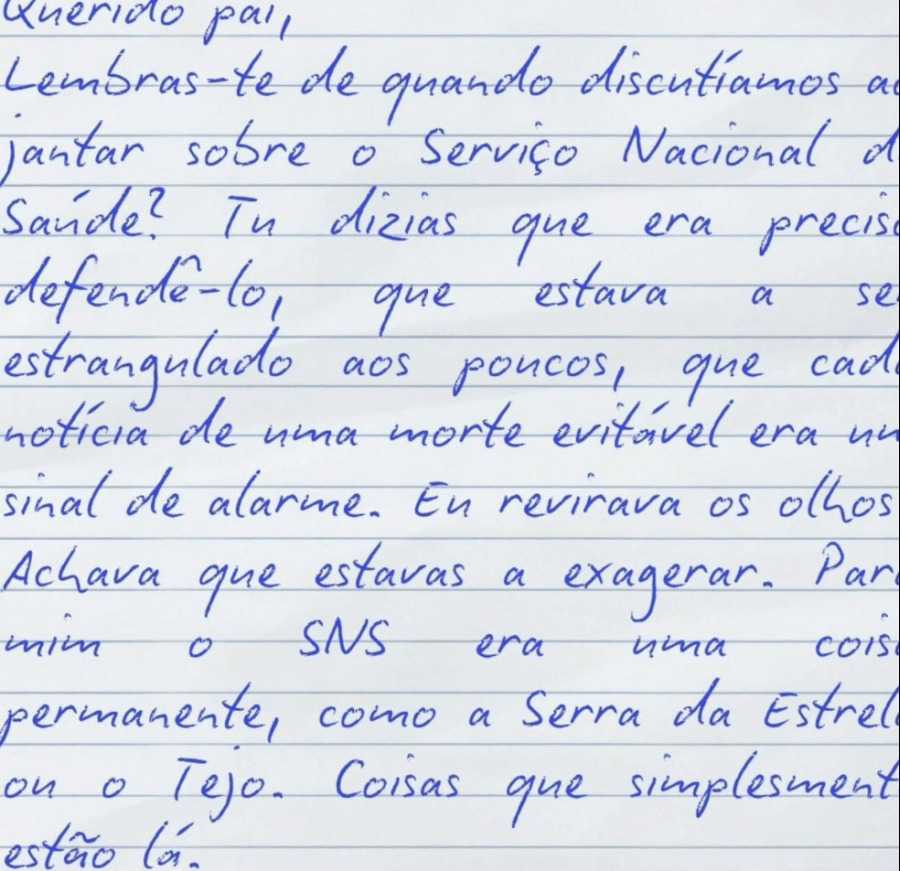 Querido pai,
Lembras-te de quando discutíamos ao
jantar sobre o Serviço Nacional de
Saúde? Tu dizias que era preciso
defendê-lo, que estava a ser
estrangulado aos poucos, que cada
notícia de uma morte evitável era um
sinal de alarme. Eu revirava os olhos
Achava que estavas a exagerar. Para
mim o SNS era uma coisa
permanente, como a Serra da Estrela
ou o Tejo. Coisas que simplesmente
estão lá.